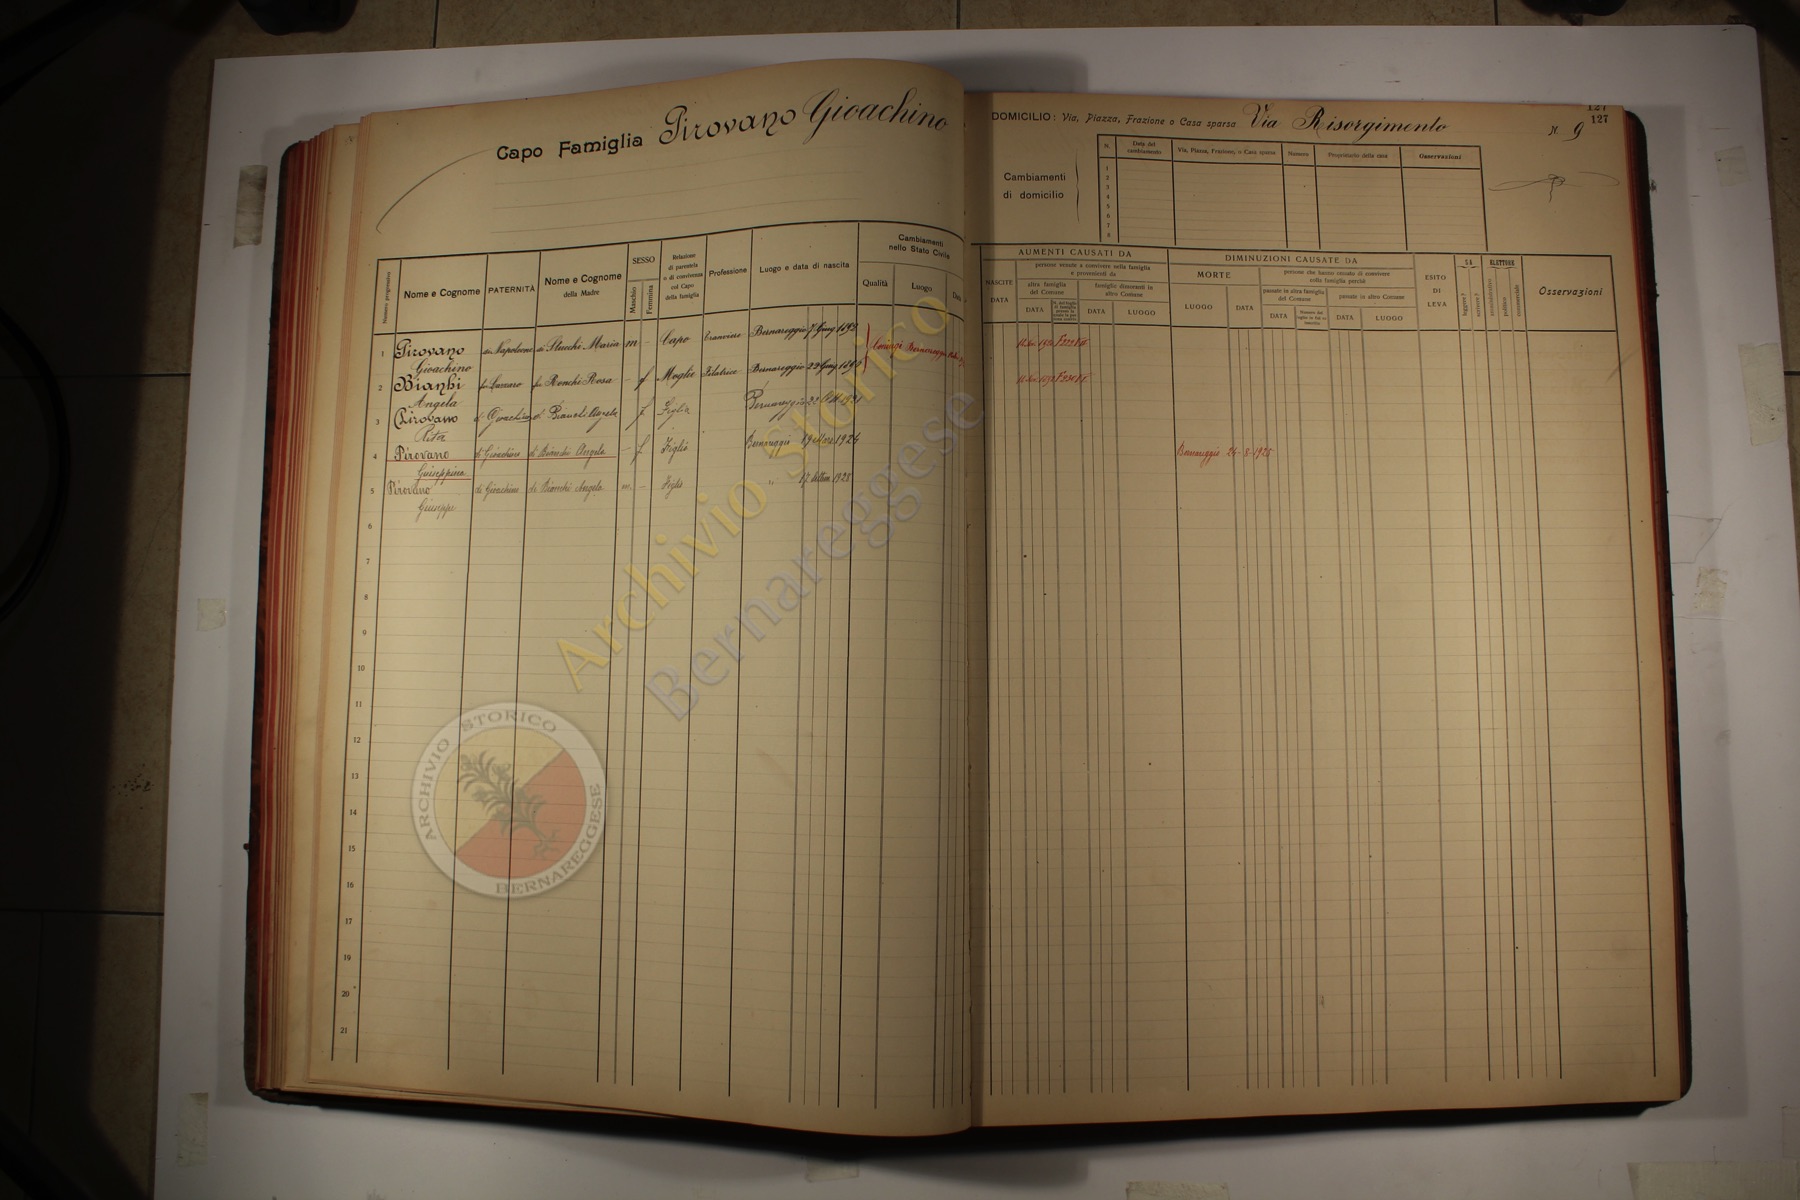 Capo Famiglia Pirovano Gioachino
Numero progressivo
Nome e Cognome
PATERNITÀ
Nome e Cognome
della Madre
SESSO
Maschio
Femmina
Relazione
di parentela
o di convivenza
col Capo
della famiglia
Professione
Luogo e data di nascita
Cambiamenti
nello Stato Civile
Qualità
Luogo
Data
1 Pirovano di Napoleone di Stucchi Maria m - Capo Tranviere Bernareggio 7 Giug
Gioachino
2 Bianhi fu fu Ronchi Rosa - f Moglie Filatrice Bernareggio 22 Giug
Angela
3 Pirovano di Gioachino di Bianchi Angela f Figlia Bernareggio 22
Rita
4 Pirovano di Gioachino di Bianchi Angela - f Figlia Bernareggio 19 1924
Giuseppina
5 Pirovano di Gioachino di Bianchi Angela m. - Figlio " 17 1925
Giuseppe
6
7
8
9
10
11
12
13
14
15
16
17
18
19
20
21
127
127
DOMICILIO: Via, Piazza, Frazione o Casa sparsa Via Risorgimento N. 9
Cambiamenti
di domicilio
N.
Data del
cambiamento
Via, Piazza, Frazione, o Casa sparsa
Numero
Proprietario della casa
Osservazioni
1
2
3
4
5
6
7
8
AUMENTI CAUSATI DA
NASCITE
DATA
persone venute a convivere nella famiglia
e provenienti da
altra famiglia
del Comune
famiglie dimoranti in
altro Comune
DATA
DATA
LUOGO
DIMINUZIONI CAUSATE DA
MORTE
LUOGO
DATA
persone che hanno cessato di convivere
colla famiglia perchè
passate in altra famiglia
del Comune
passate in altro Comune
DATA
DATA
LUOGO
ESITO
DI
LEVA
SA
leggere?
scrivere?
ELETTORE
amministrativo
politico
commerciale
Osservazioni
Bernareggio 24-8-1925
Archivio Storico
Bernareggese
ARCHIVIO STORICO
BERNAREGGESE